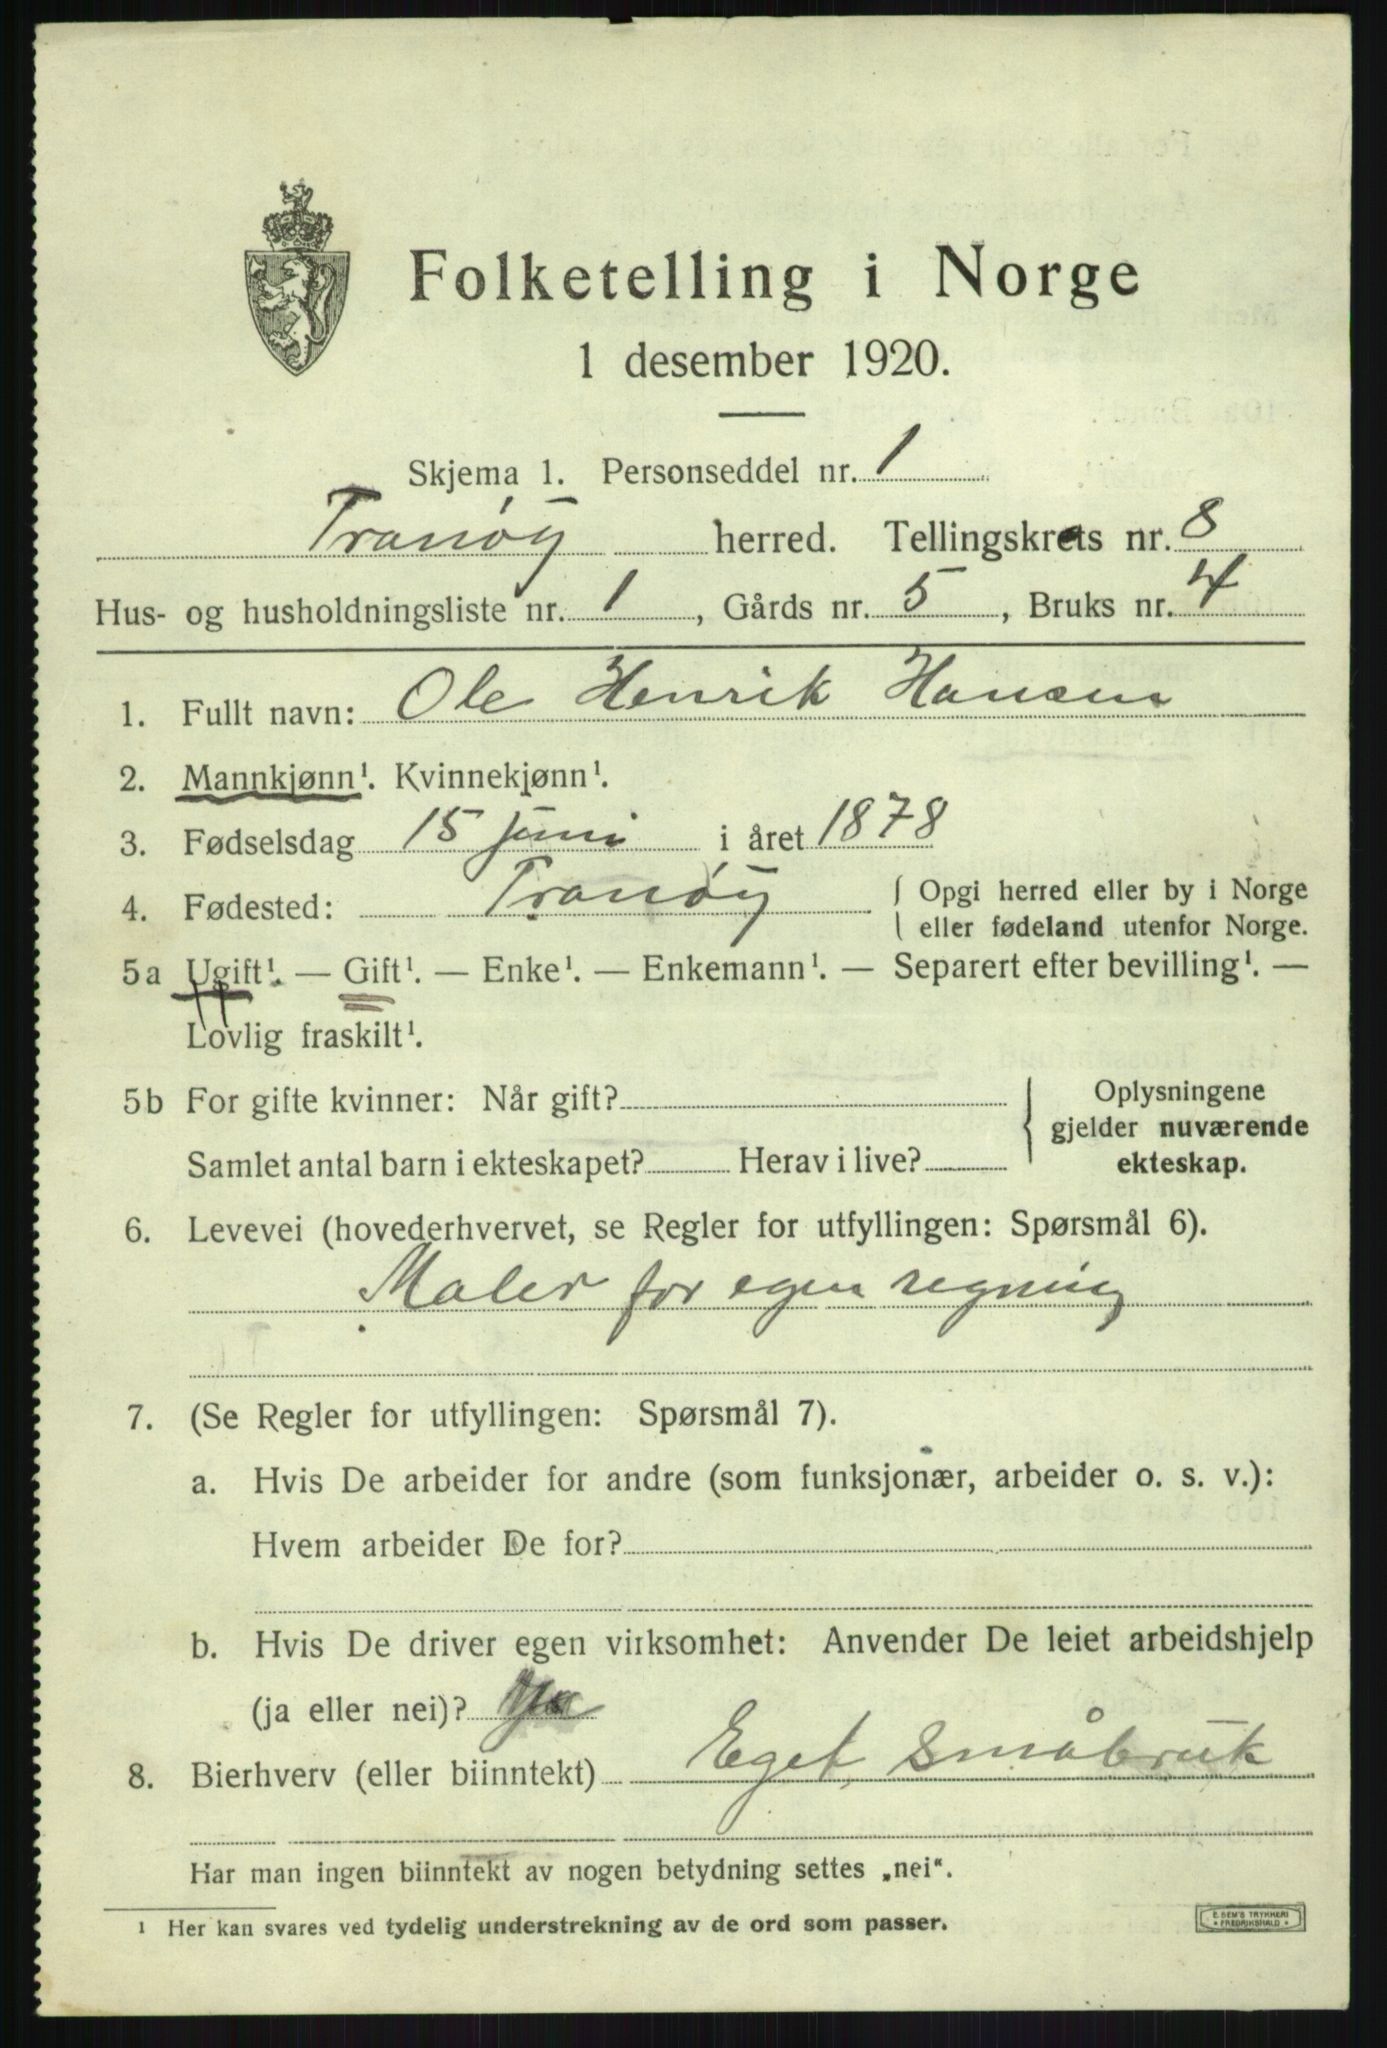 Folketelling i Norge
1 desember 1920.
Skjema 1. Personseddel nr. 1
Tranøy herred. Tellingskrets nr. 8
Hus- og husholdningsliste nr. 1, Gårds nr. 5, Bruks nr. 4
1. Fullt navn: Ole Henrik Hansen
2. Mannkjønn¹. Kvinnekjønn¹.
3. Fødselsdag 15 juni i året 1878
4. Fødested: Tranøy { Opgi herred eller by i Norge
eller fødeland utenfor Norge.
5a Ugift¹. — Gift¹. — Enke¹. — Enkemann¹. — Separert efter bevilling¹. —
Lovlig fraskilt¹.
5b For gifte kvinner: Når gift? { Oplysningene
gjelder nuværende
Samlet antal barn i ekteskapet? Herav i live? ekteskap.
6. Levevei (hovederhvervet, se Regler for utfyllingen: Spørsmål 6).
Maler for egen regning
7. (Se Regler for utfyllingen: Spørsmål 7).
a. Hvis De arbeider for andre (som funksjonær, arbeider o. s. v.):
Hvem arbeider De for?
b. Hvis De driver egen virksomhet: Anvender De leiet arbeidshjelp
(ja eller nei)?
8. Bierhverv (eller biinntekt) Eget småbruk
Har man ingen biinntekt av nogen betydning settes „nei“.
¹ Her kan svares ved tydelig understrekning av de ord som passer.
E. SEM'S TRYKKERI
FREDRIKSHALD